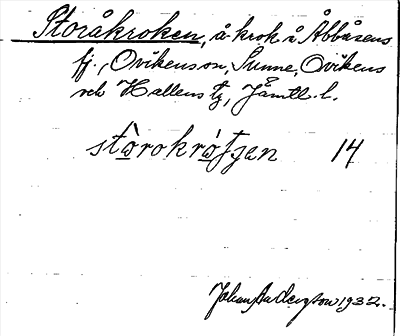 Storåkroken, å-krok i Åbbåsens
fj., Ovikens sn, Sunne, Ovikens
och Hallens tg, Jämtl. l.
stòrokròtjen 14
Johan Anderzson 1932.